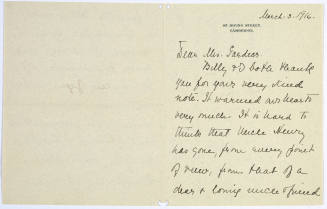 March 3. 1916.
95 IRVING STREET,
CAMBRIDGE.
Dear Mrs.
Billy & I both thank
you for your very kind
note. It warmed our hearts
very much. It is hard to
think that Uncle Henry
has gone, from every point
of view, from that of a
dear & loving uncle & friend